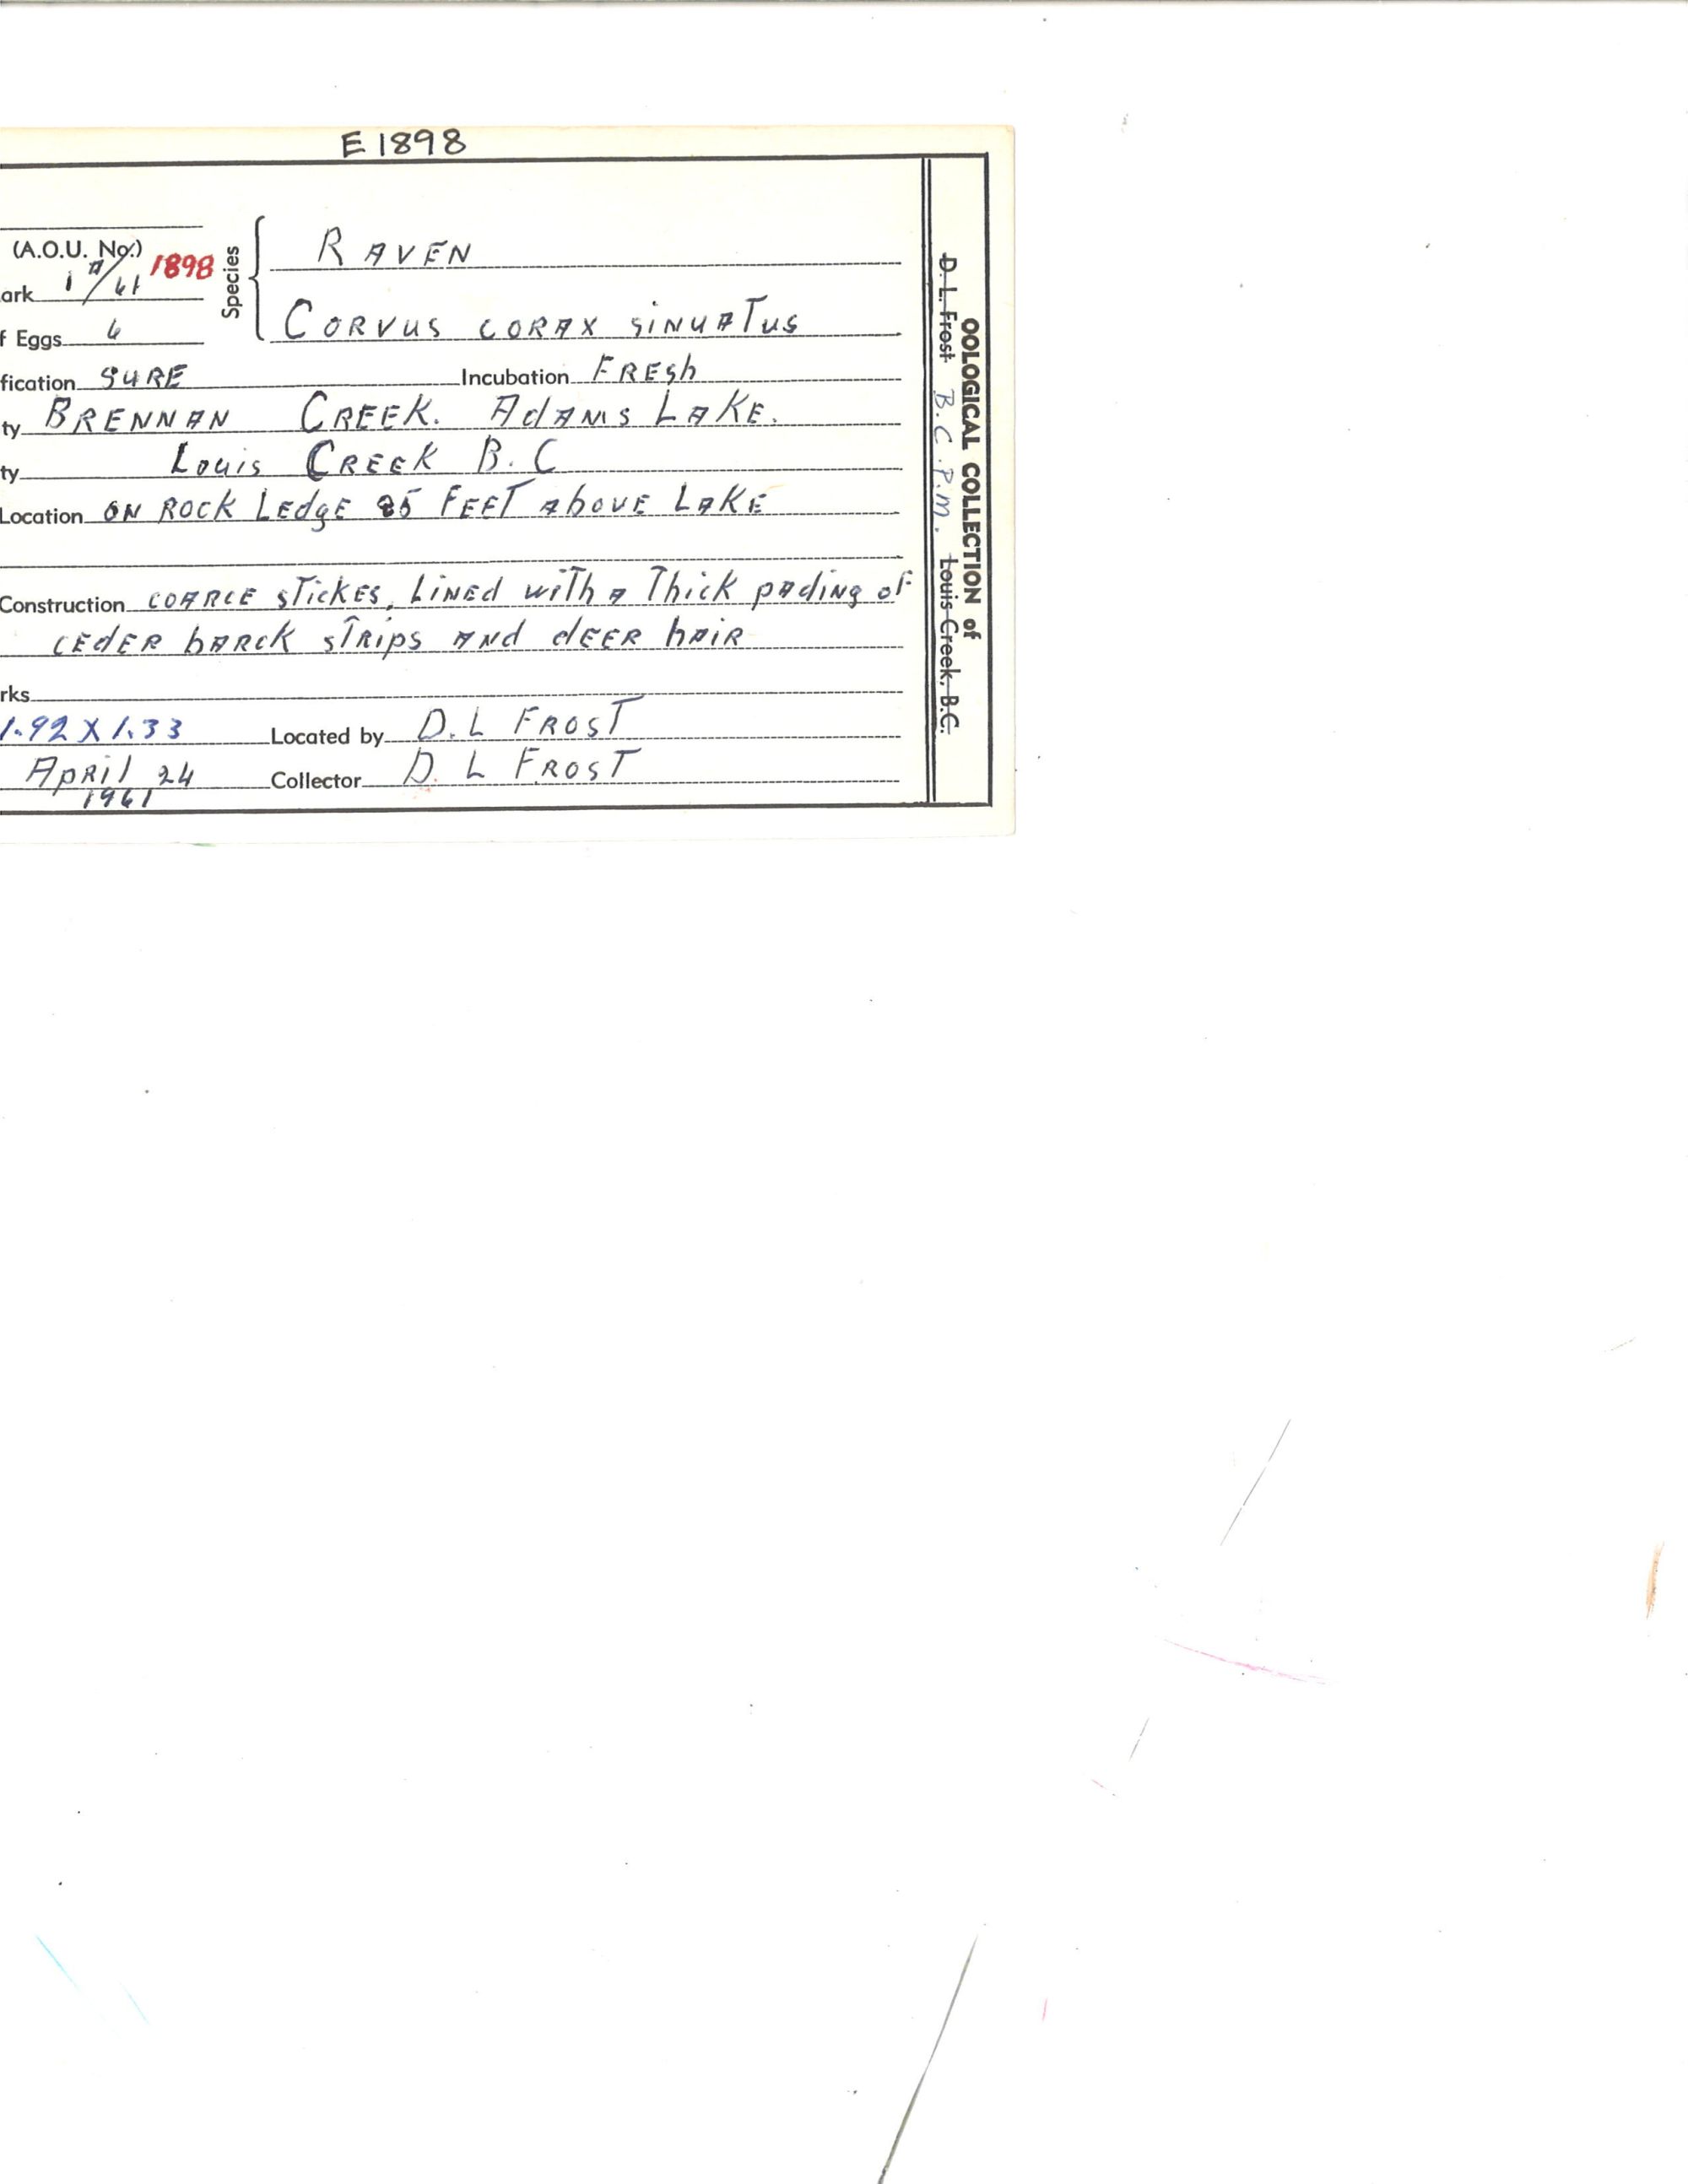 E 1898
(A.O.U. No.)
ark 1 A/61 1898
f Eggs 6
Species
RAVEN
CORVUS CORAX SINUATUS
fication SURE Incubation FRESh
ty BRENNAN CREEK. AdAMS LAKE.
ty Louis CREEK B.C
Location ON ROCK LEdgE 85 FEET AbOVE LAKE
Construction COARCE STickES, LiNED wiTh A Thick pAding of
CEdER bARCK STRips ANd dEER hAiR
rks
1.92 X 1.33 Located by D.L FROST
April 24 Collector D. L FROST
1961
OOLOGICAL COLLECTION of
D. L. Frost B.C.P.M. Louis Creek, B.C.